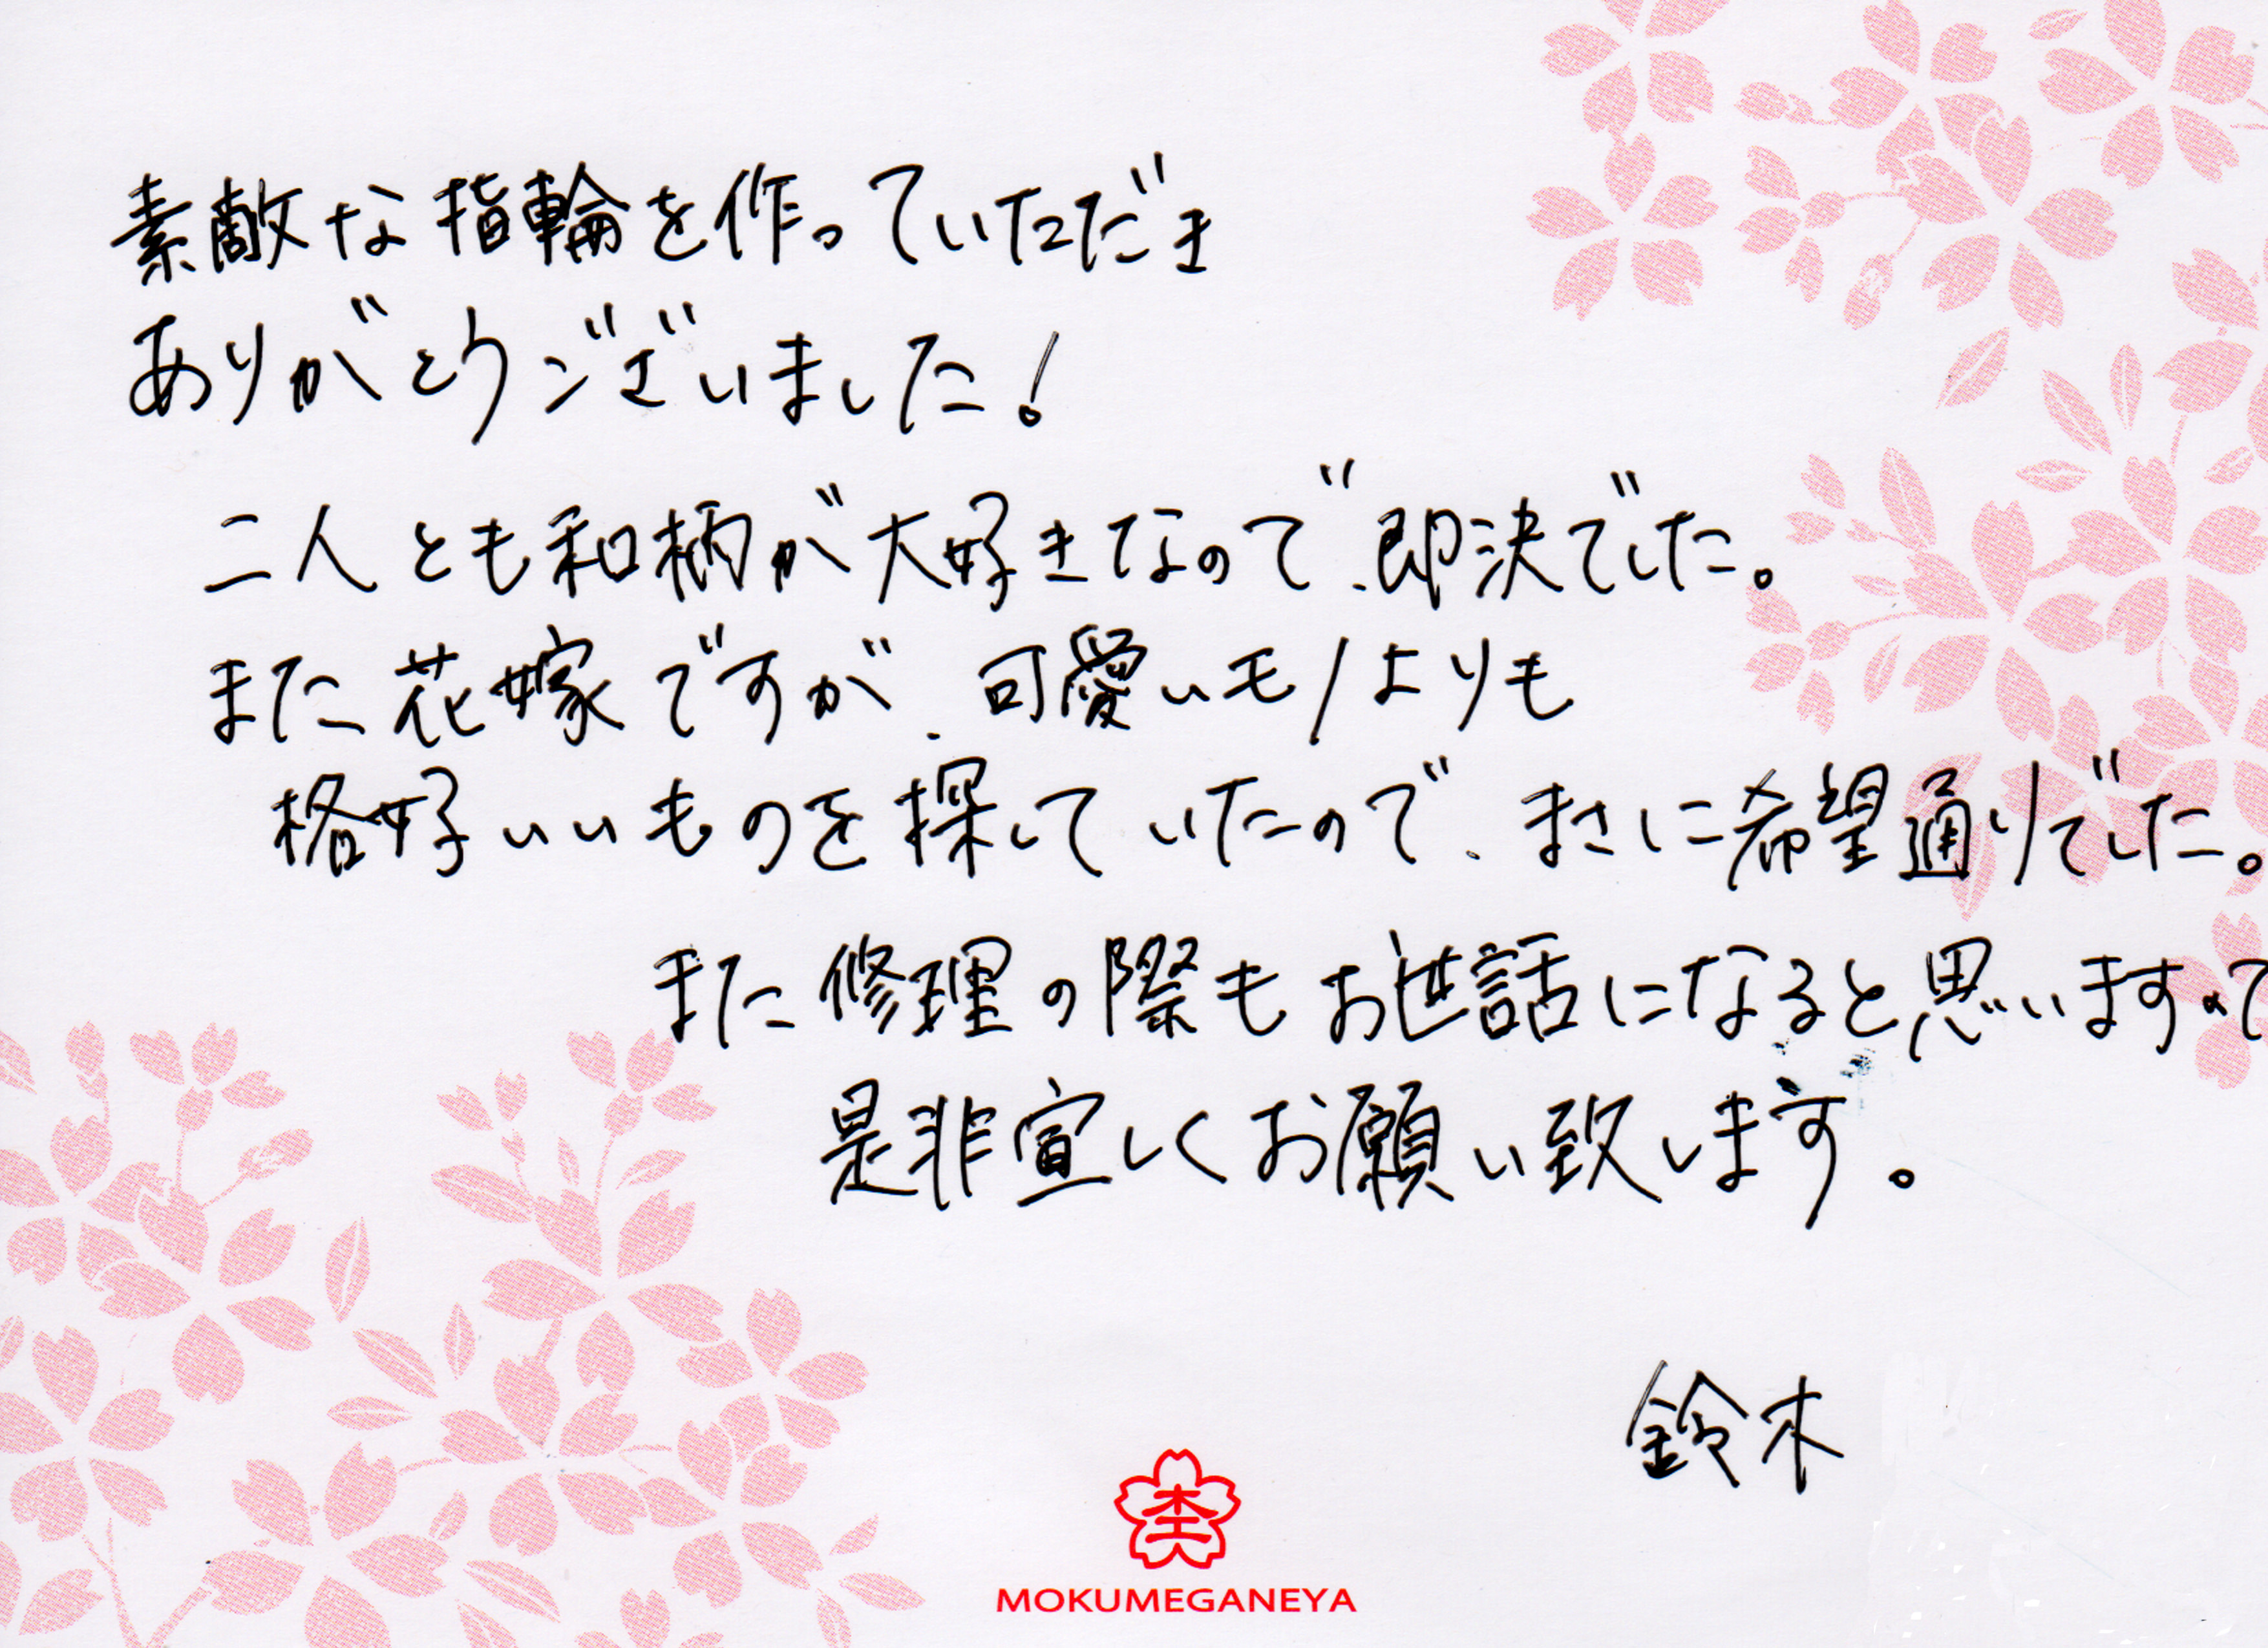 素敵な指輪を作っていただき
ありがとうございました!
二人とも和柄が大好きなので、即決でした。
また花嫁ですが、可愛いモノよりも
格好いいものを探していたので、まさに希望通りでした。
また修理の際もお世話になると思いますので
是非宜しくお願い致します。
鈴木
杢
MOKUMEGANEYA